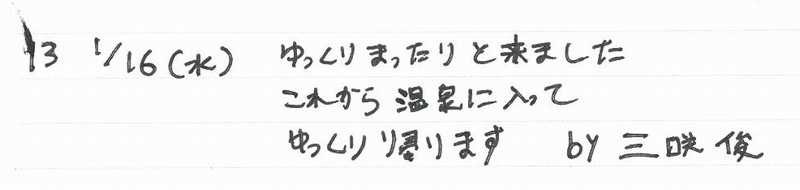 '13 1/16(水) ゆっくりまったりと来ました
これから温泉に入って
ゆっくり帰ります by 三咲俊